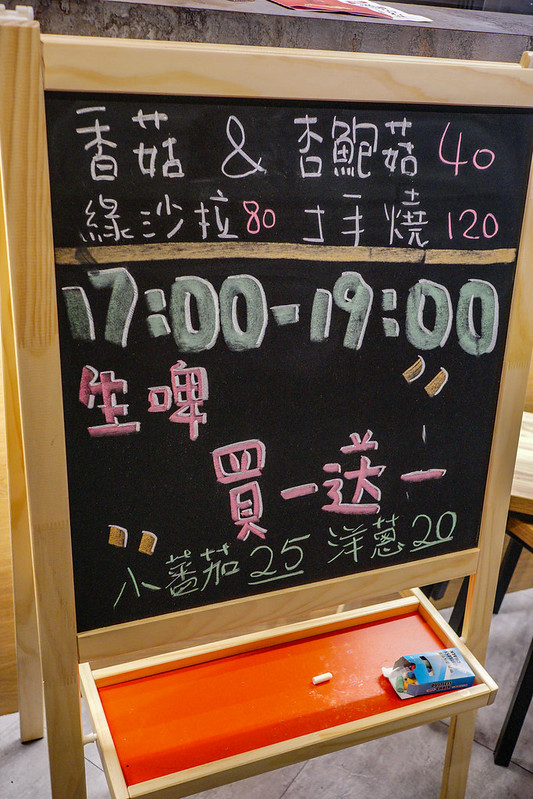 香菇 & 杏鮑菇 40
綠沙拉 80 土手燒 120
17:00-19:00
生啤
買一送一
小蕃茄 25 洋蔥 20